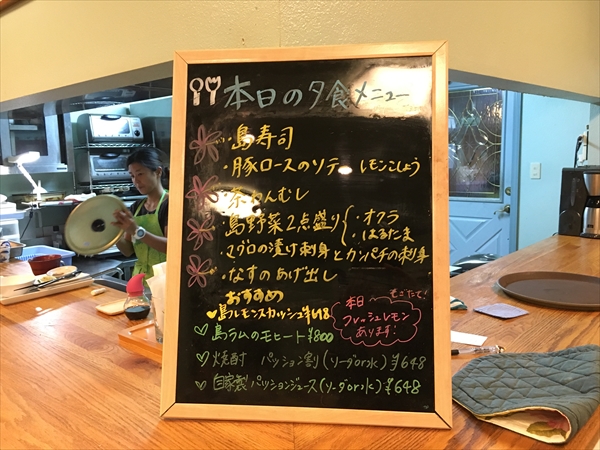 本日の夕食メニュー
・島寿司
・豚ロースのソテー レモンこしょう
・茶わんむし
・島野菜2点盛り{・オクラ
・はるたま
・マグロの漬け刺身とカンパチの刺身
・なすのあげ出し
おすすめ
島レモンスカッシュ
島ラムのモヒート ¥800
焼酎 パッション割(ソーダor水) ¥648
自家製パッションジュース(ソーダor水) ¥648
もぎたて!
本日
フレッシュレモン
あります!